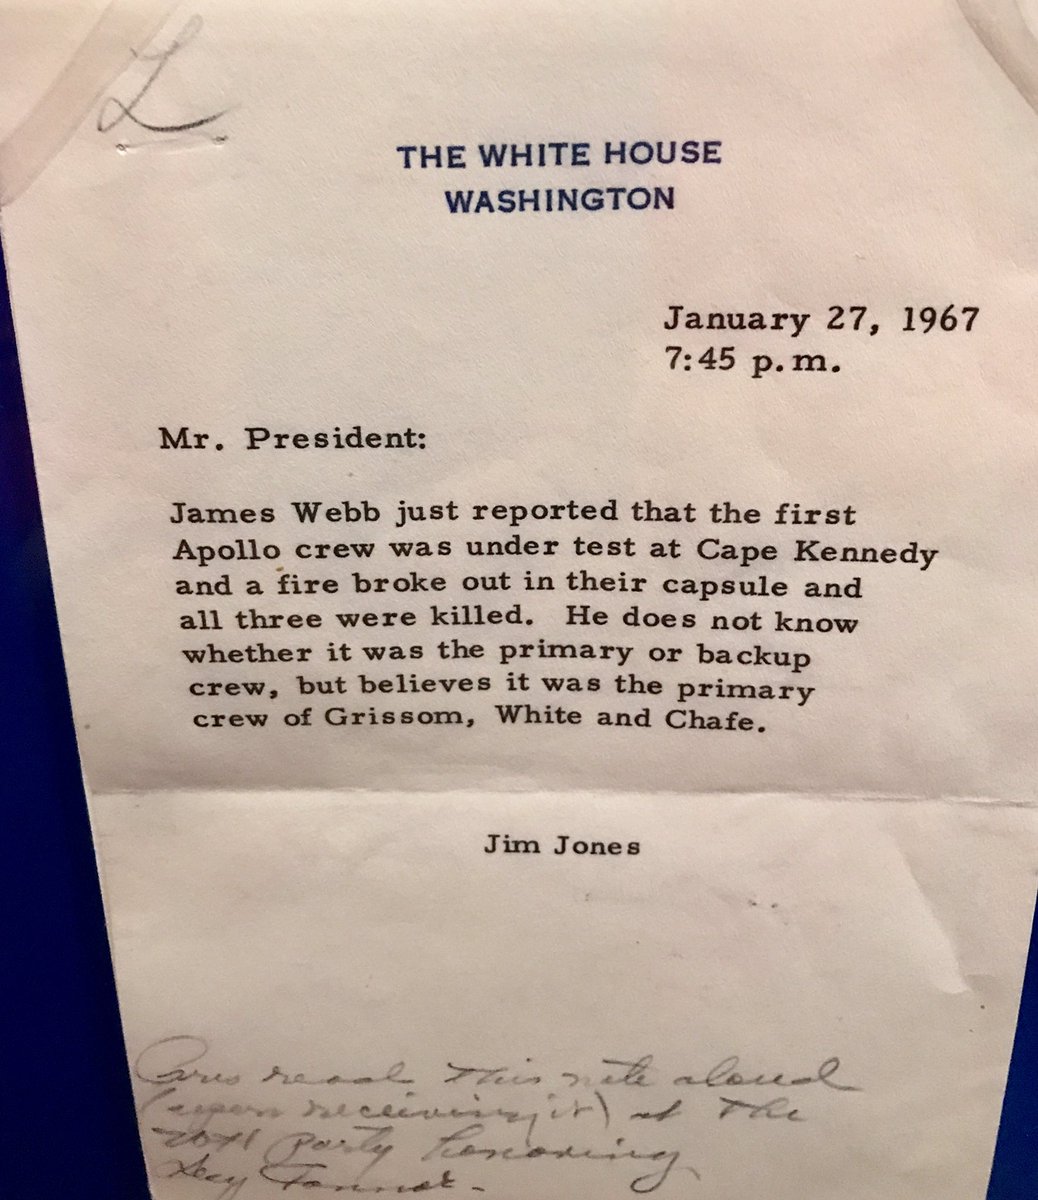 L
THE WHITE HOUSE
WASHINGTON
January 27, 1967
7:45 p.m.
Mr. President:
James Webb just reported that the first
Apollo crew was under test at Cape Kennedy
and a fire broke out in their capsule and
all three were killed. He does not know
whether it was the primary or backup
crew, but believes it was the primary
crew of Grissom, White and Chafe.
Jim Jones
Pres read this note aloud
(upon receiving it) at the
party honoring
Secy